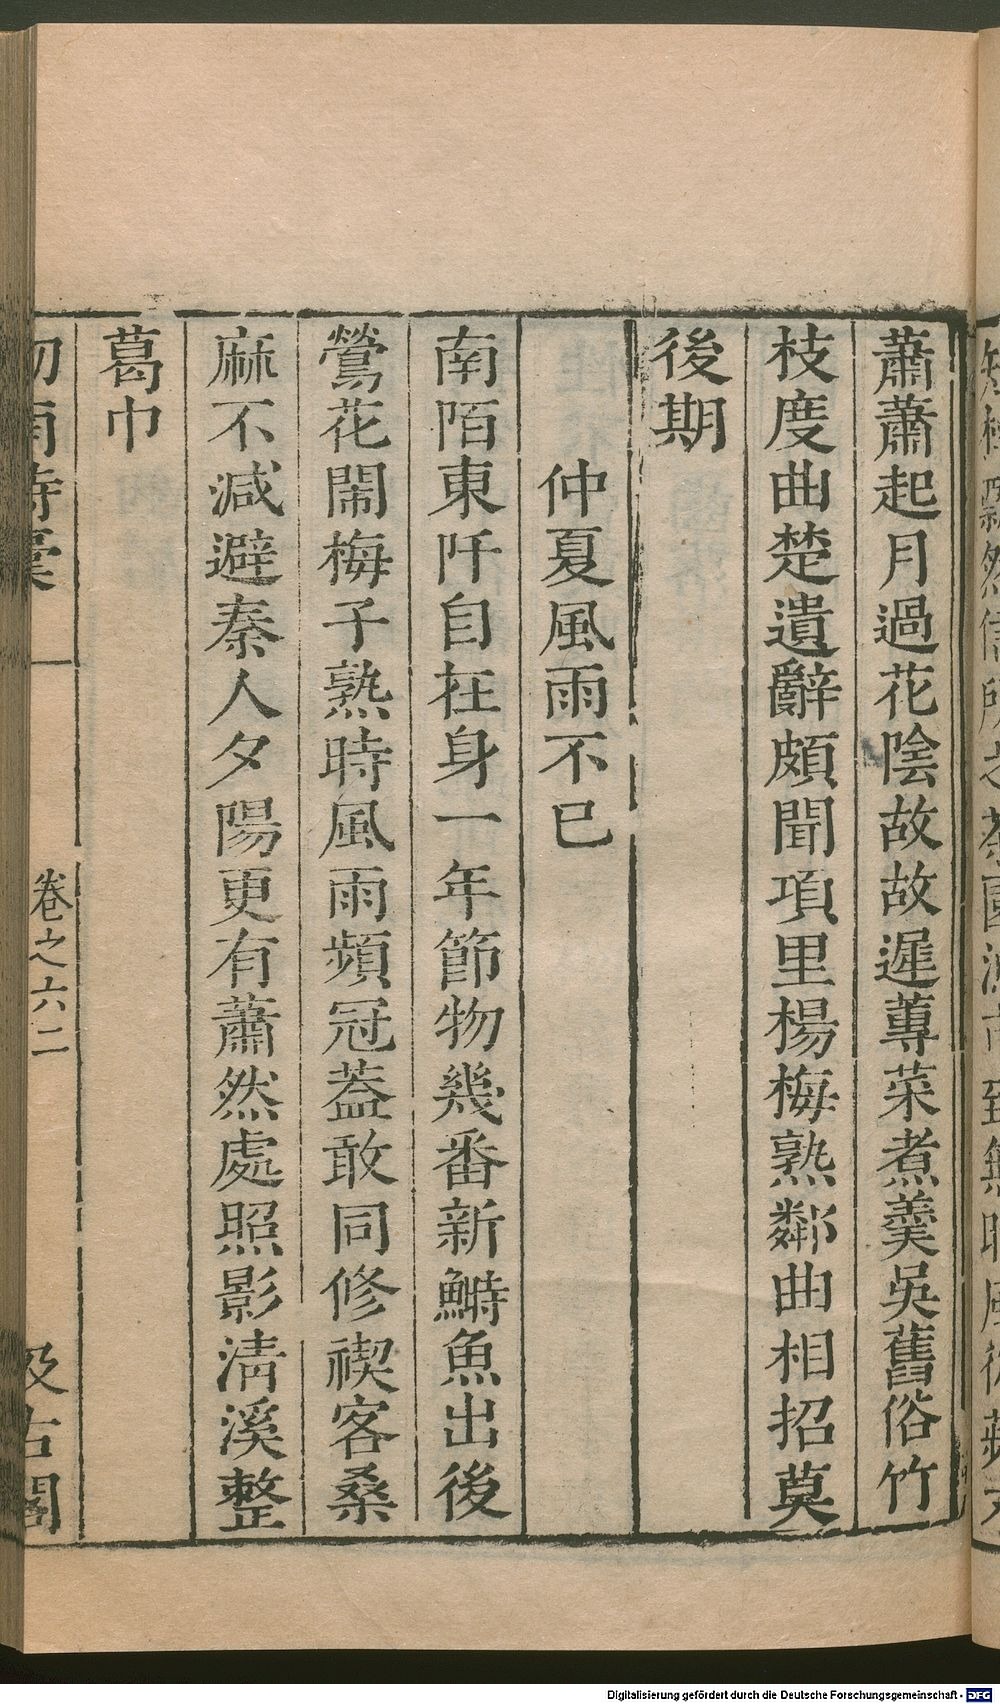 蕭蕭起月過花陰故故遲蓴菜煮羹吳舊俗竹
枝度曲楚遺辭頗聞項里楊梅熟鄰曲相招莫
後期
仲夏風雨不已
南陌東阡自在身一年節物幾番新鰣魚出後
鶯花鬧梅子熟時風雨頻冠蓋敢同修禊客桑
麻不減避秦人夕陽更有蕭然處照影清溪整
葛巾
卷之六二
汲古閣
Digitalisierung gefördert durch die Deutsche Forschungsgemeinschaft - DFG